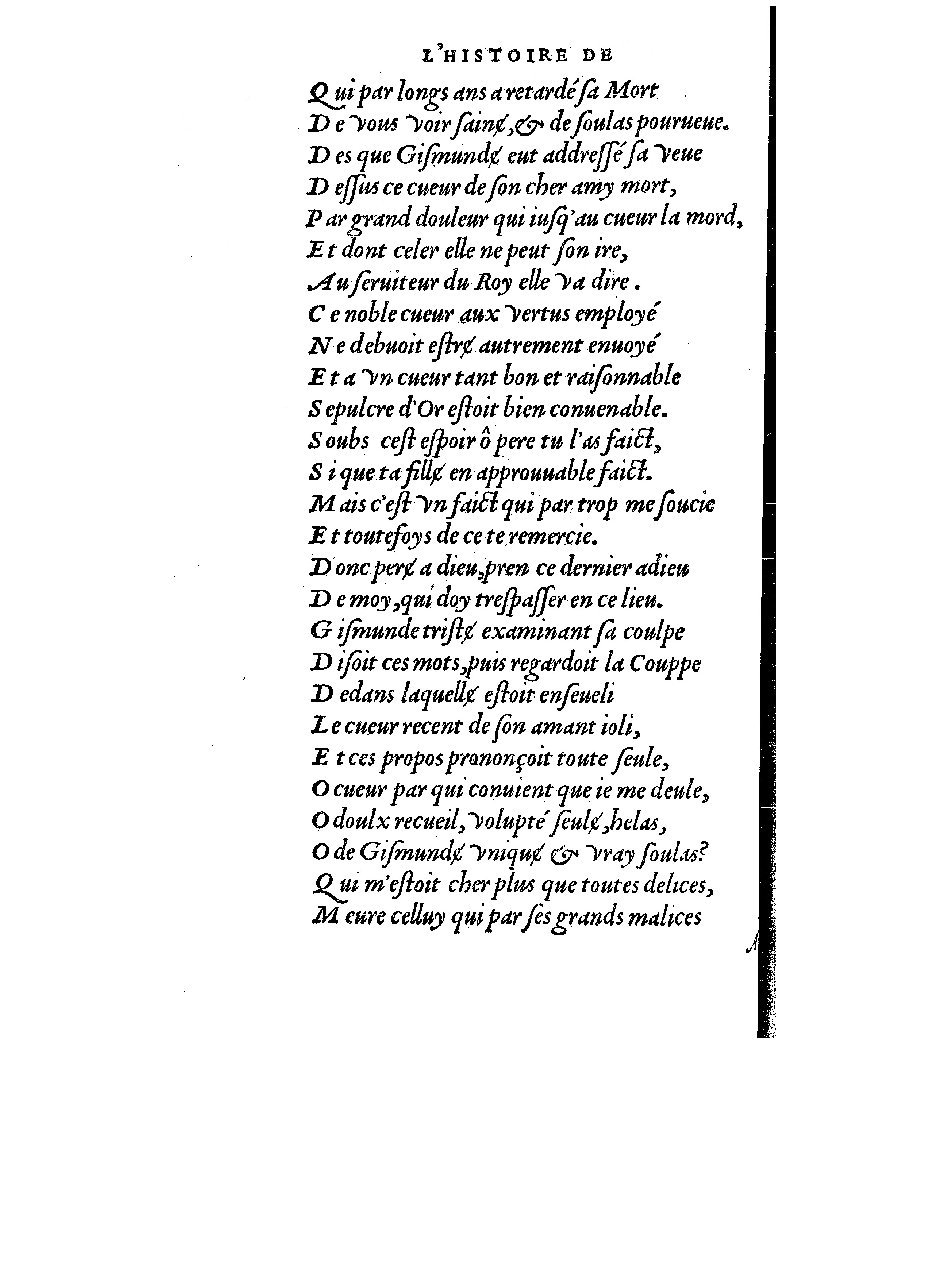 L'HISTOIRE DE
Qui par longs ans a retardé ſa Mort
De vous voir ſainɇ, & de ſoulas pourueue.
Des que Giſmundɇ eut addreſſé ſa veue
Deſſus ce cueur de ſon cher amy mort,
Par grand douleur qui iuſq'au cueur la mord,
Et dont celer elle ne peut ſon ire,
Au ſeruiteur du Roy elle va dire.
Ce noble cueur aux vertus employé
Ne debuoit eſtrɇ autrement enuoyé
Et a vn cueur tant bon et raiſonnable
Sepulcre d'Or eſtoit bien conuenable.
Soubs ceſt eſpoir ô pere tu l'as faict,
Si que ta fillɇ en approuuable faict.
Mais c'eſt vn faict qui par trop me ſoucie
Et toutefoys de ce te remercie.
Donc perɇ a dieu, pren ce dernier adieu
De moy, qui doy treſpaſſer en ce lieu.
Giſmunde triſtɇ examinant ſa coulpe
Diſoit ces mots, puis regardoit la Couppe
Dedans laquellɇ eſtoit enſeueli
Le cueur recent de ſon amant ioli,
Et ces propos prononçoit toute ſeule,
O cueur par qui conuient que ie me deule,
O doulx recueil, volupté ſeulɇ, helas,
O de Giſmundɇ vniquɇ & vray ſoulas?
Qui m'eſtoit cher plus que toutes delices,
Meure celluy qui par ſes grands malices